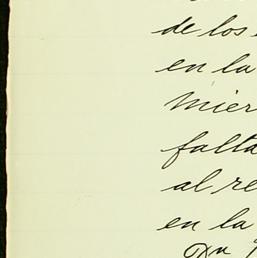 de los
en la
mier
falta
al re
en la
Dn